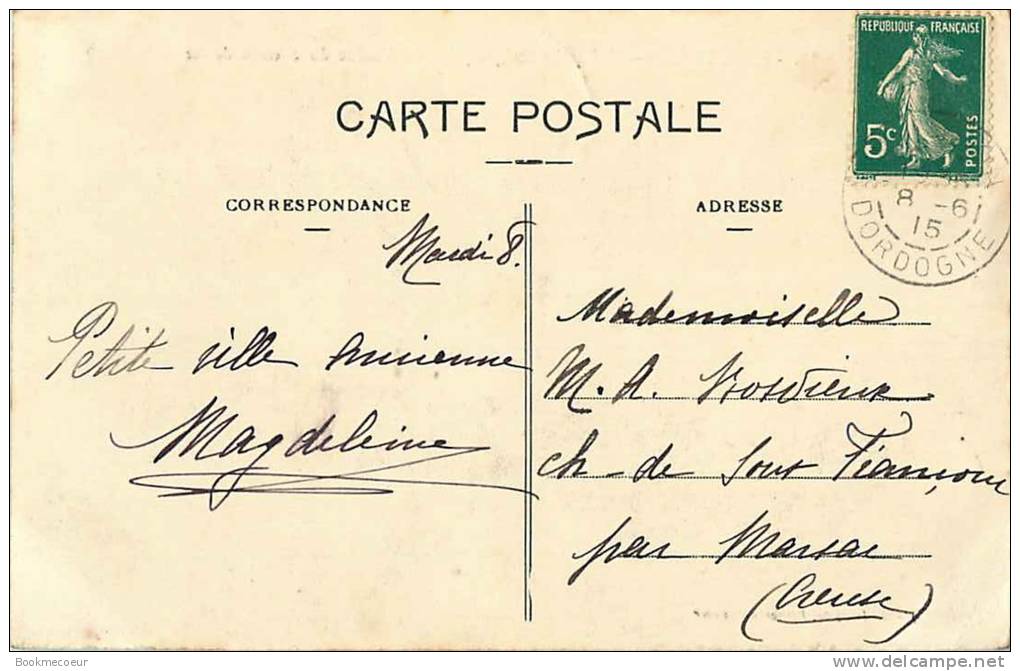 CARTE POSTALE
RÉPUBLIQUE FRANÇAISE
5c
POSTES
8 -6
15
DORDOGNE
CORRESPONDANCE
Mardi 8.
Petite ville ancienne
Magdeleine
ADRESSE
Mademoiselle
M. A.
ch de
par Marsac
(Creuse)
Bookmecoeur
delcampe.net